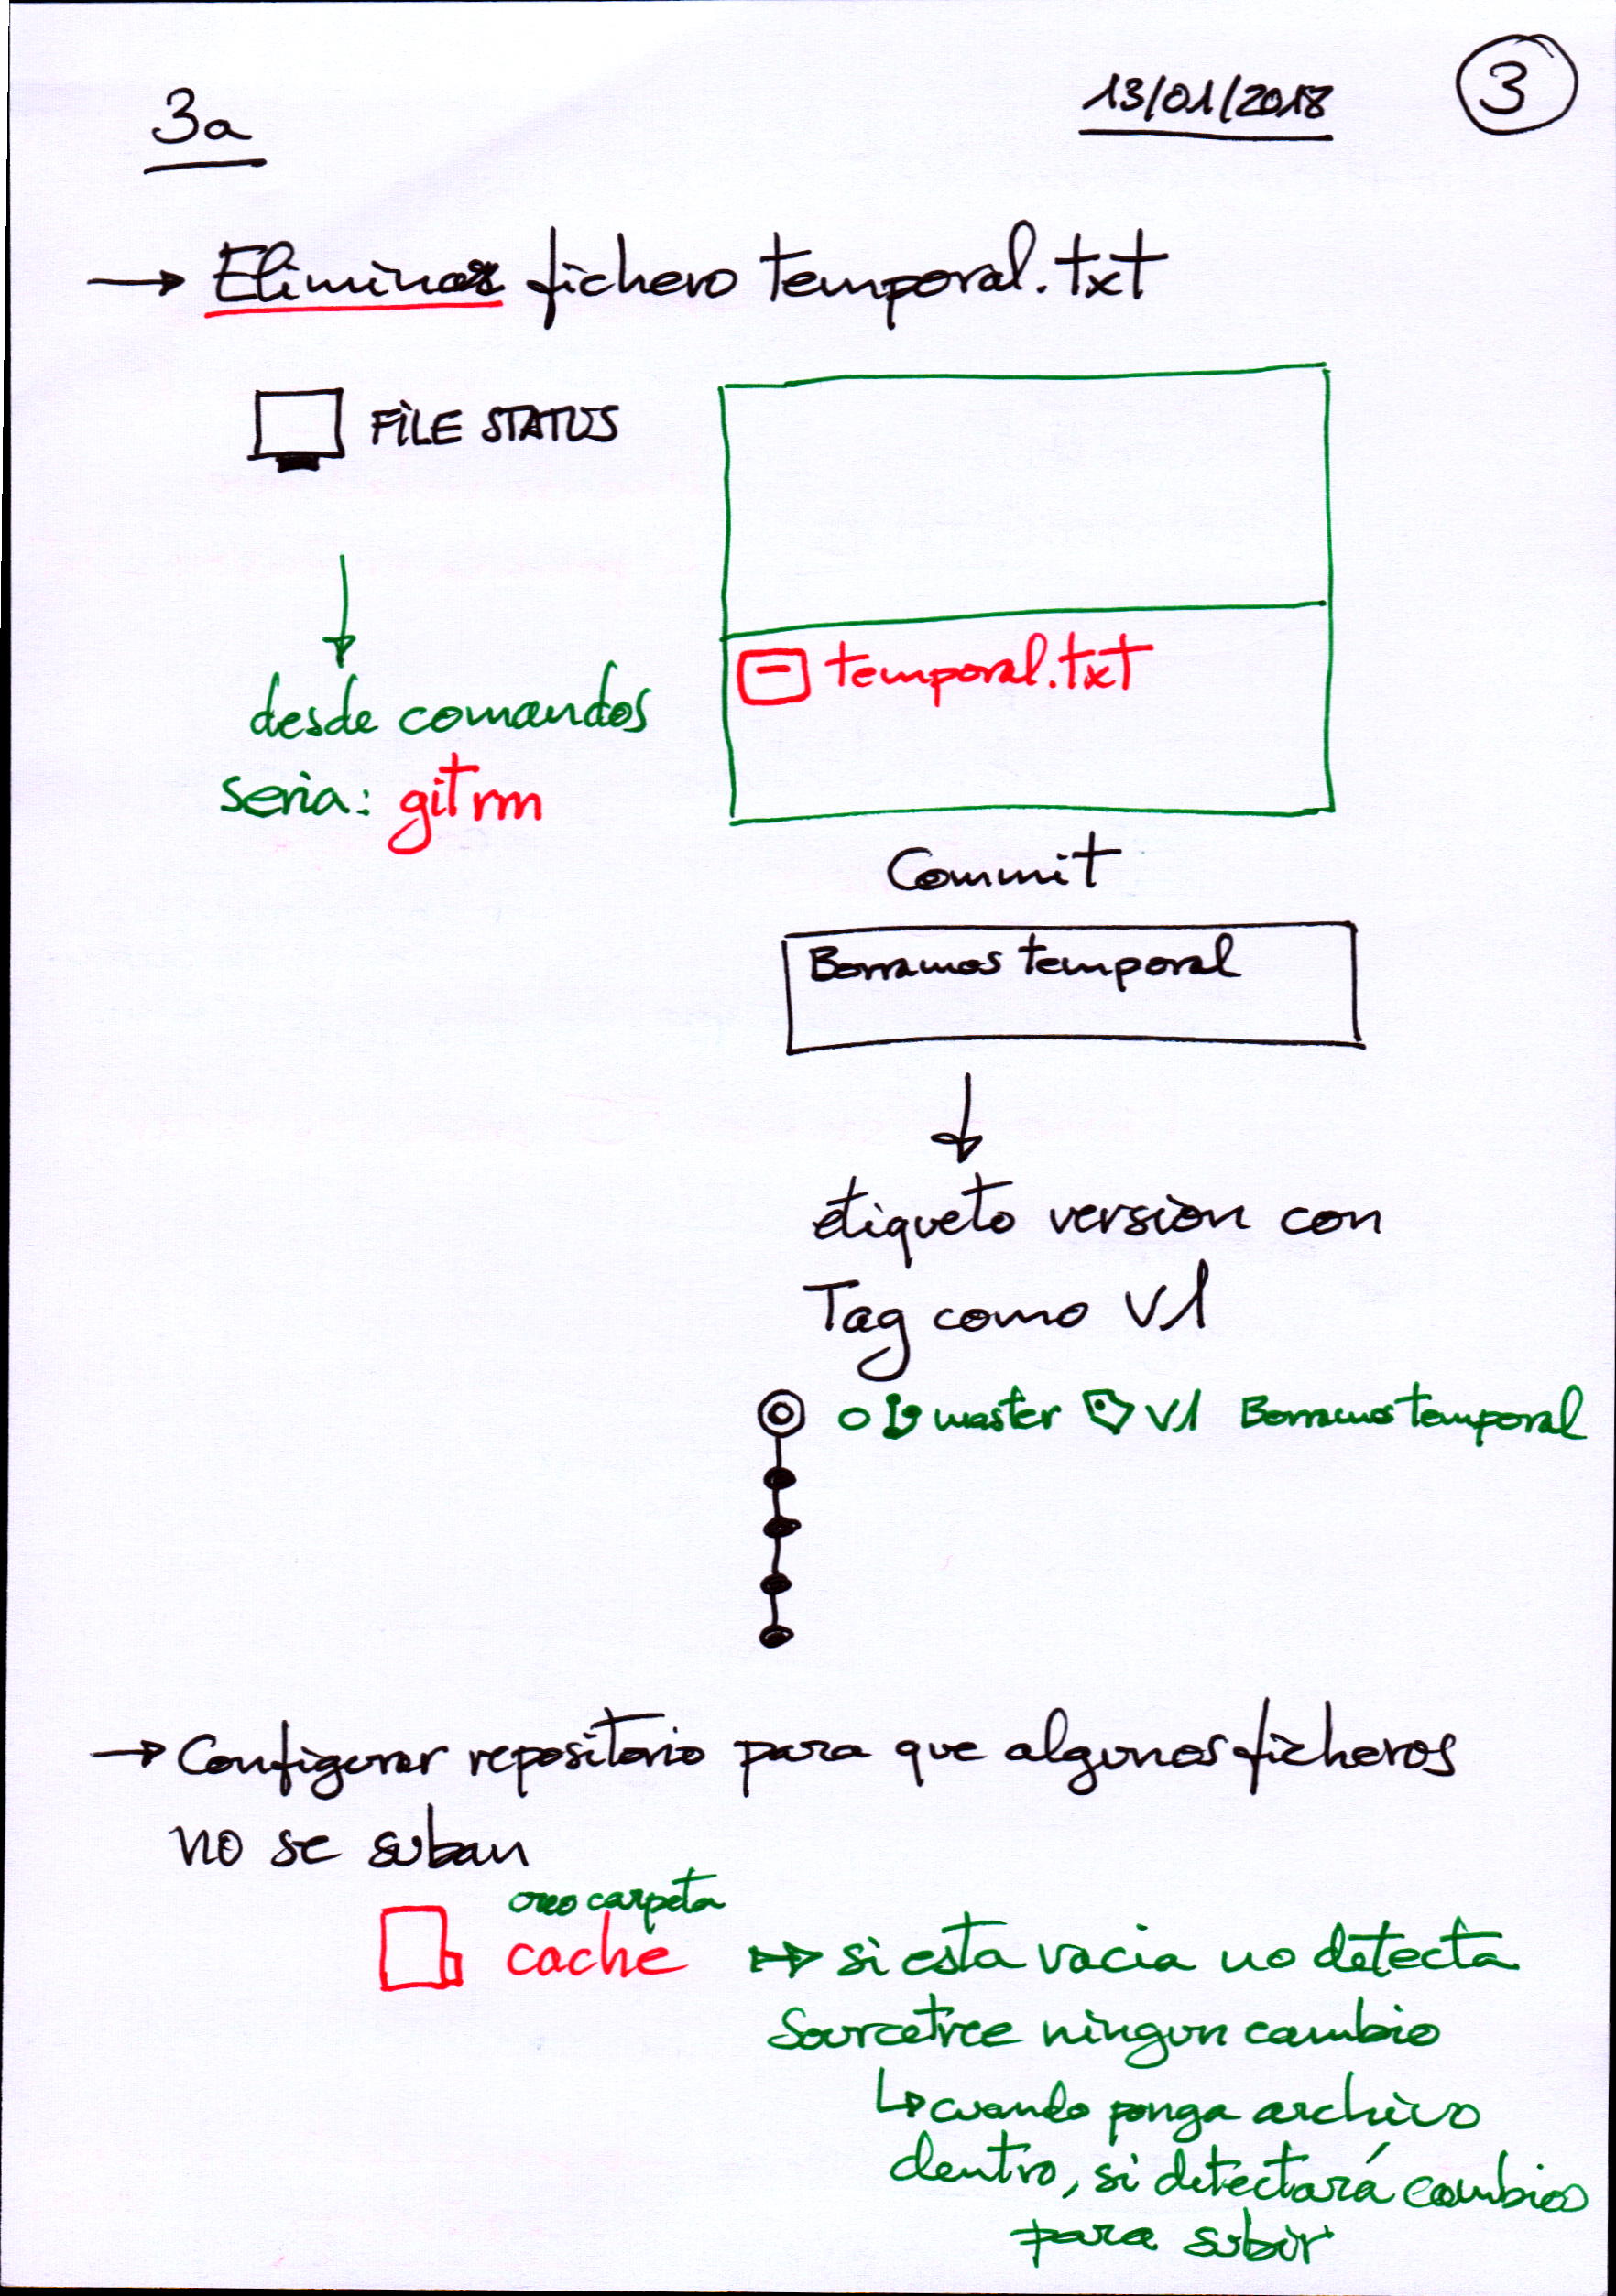 3a
13/01/2018
3
→ Eliminar fichero temporal.txt
FILE STATUS
temporal.txt
desde comandos
seria: git rm
Commit
Borramos temporal
etiqueto version con
Tag como V1
master V1 Borramos temporal
→ Configurar repositorio para que algunos ficheros
no se suban
creo carpeta
cache
si esta vacia no detecta
Sourcetree ningun cambio
↳ cuando ponga archivo
dentro, si detectará cambios
para subir